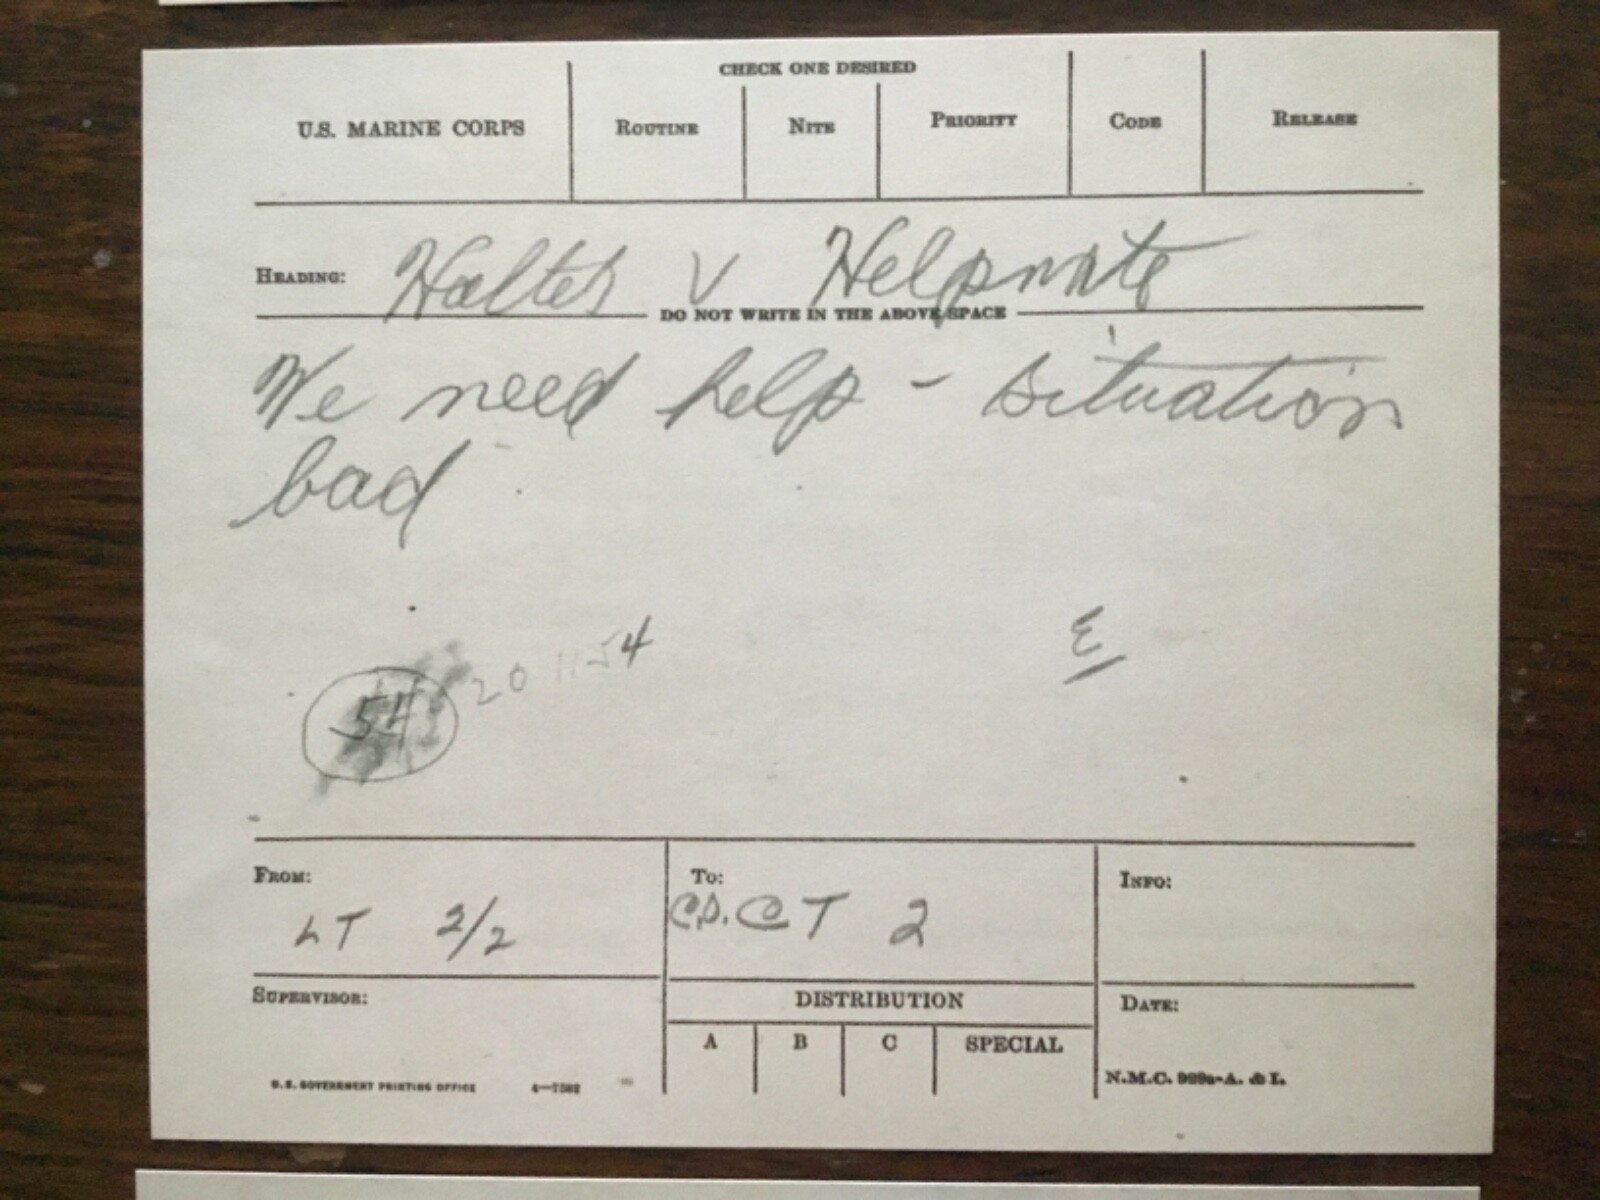 CHECK ONE DESIRED
U.S. MARINE CORPS ROUTINE NITE PRIORITY CODE RELEASE
HEADING: Halter V Helpmate
DO NOT WRITE IN THE ABOVE SPACE
We need help - situation
bad
E
20 1154
54
FROM: TO: INFO:
LT 2/2 C.O. CT 2
SUPERVISOR: DISTRIBUTION DATE:
A B C SPECIAL
U.S. GOVERNMENT PRINTING OFFICE 4—7582 N.M.C. 999a-A. & I.